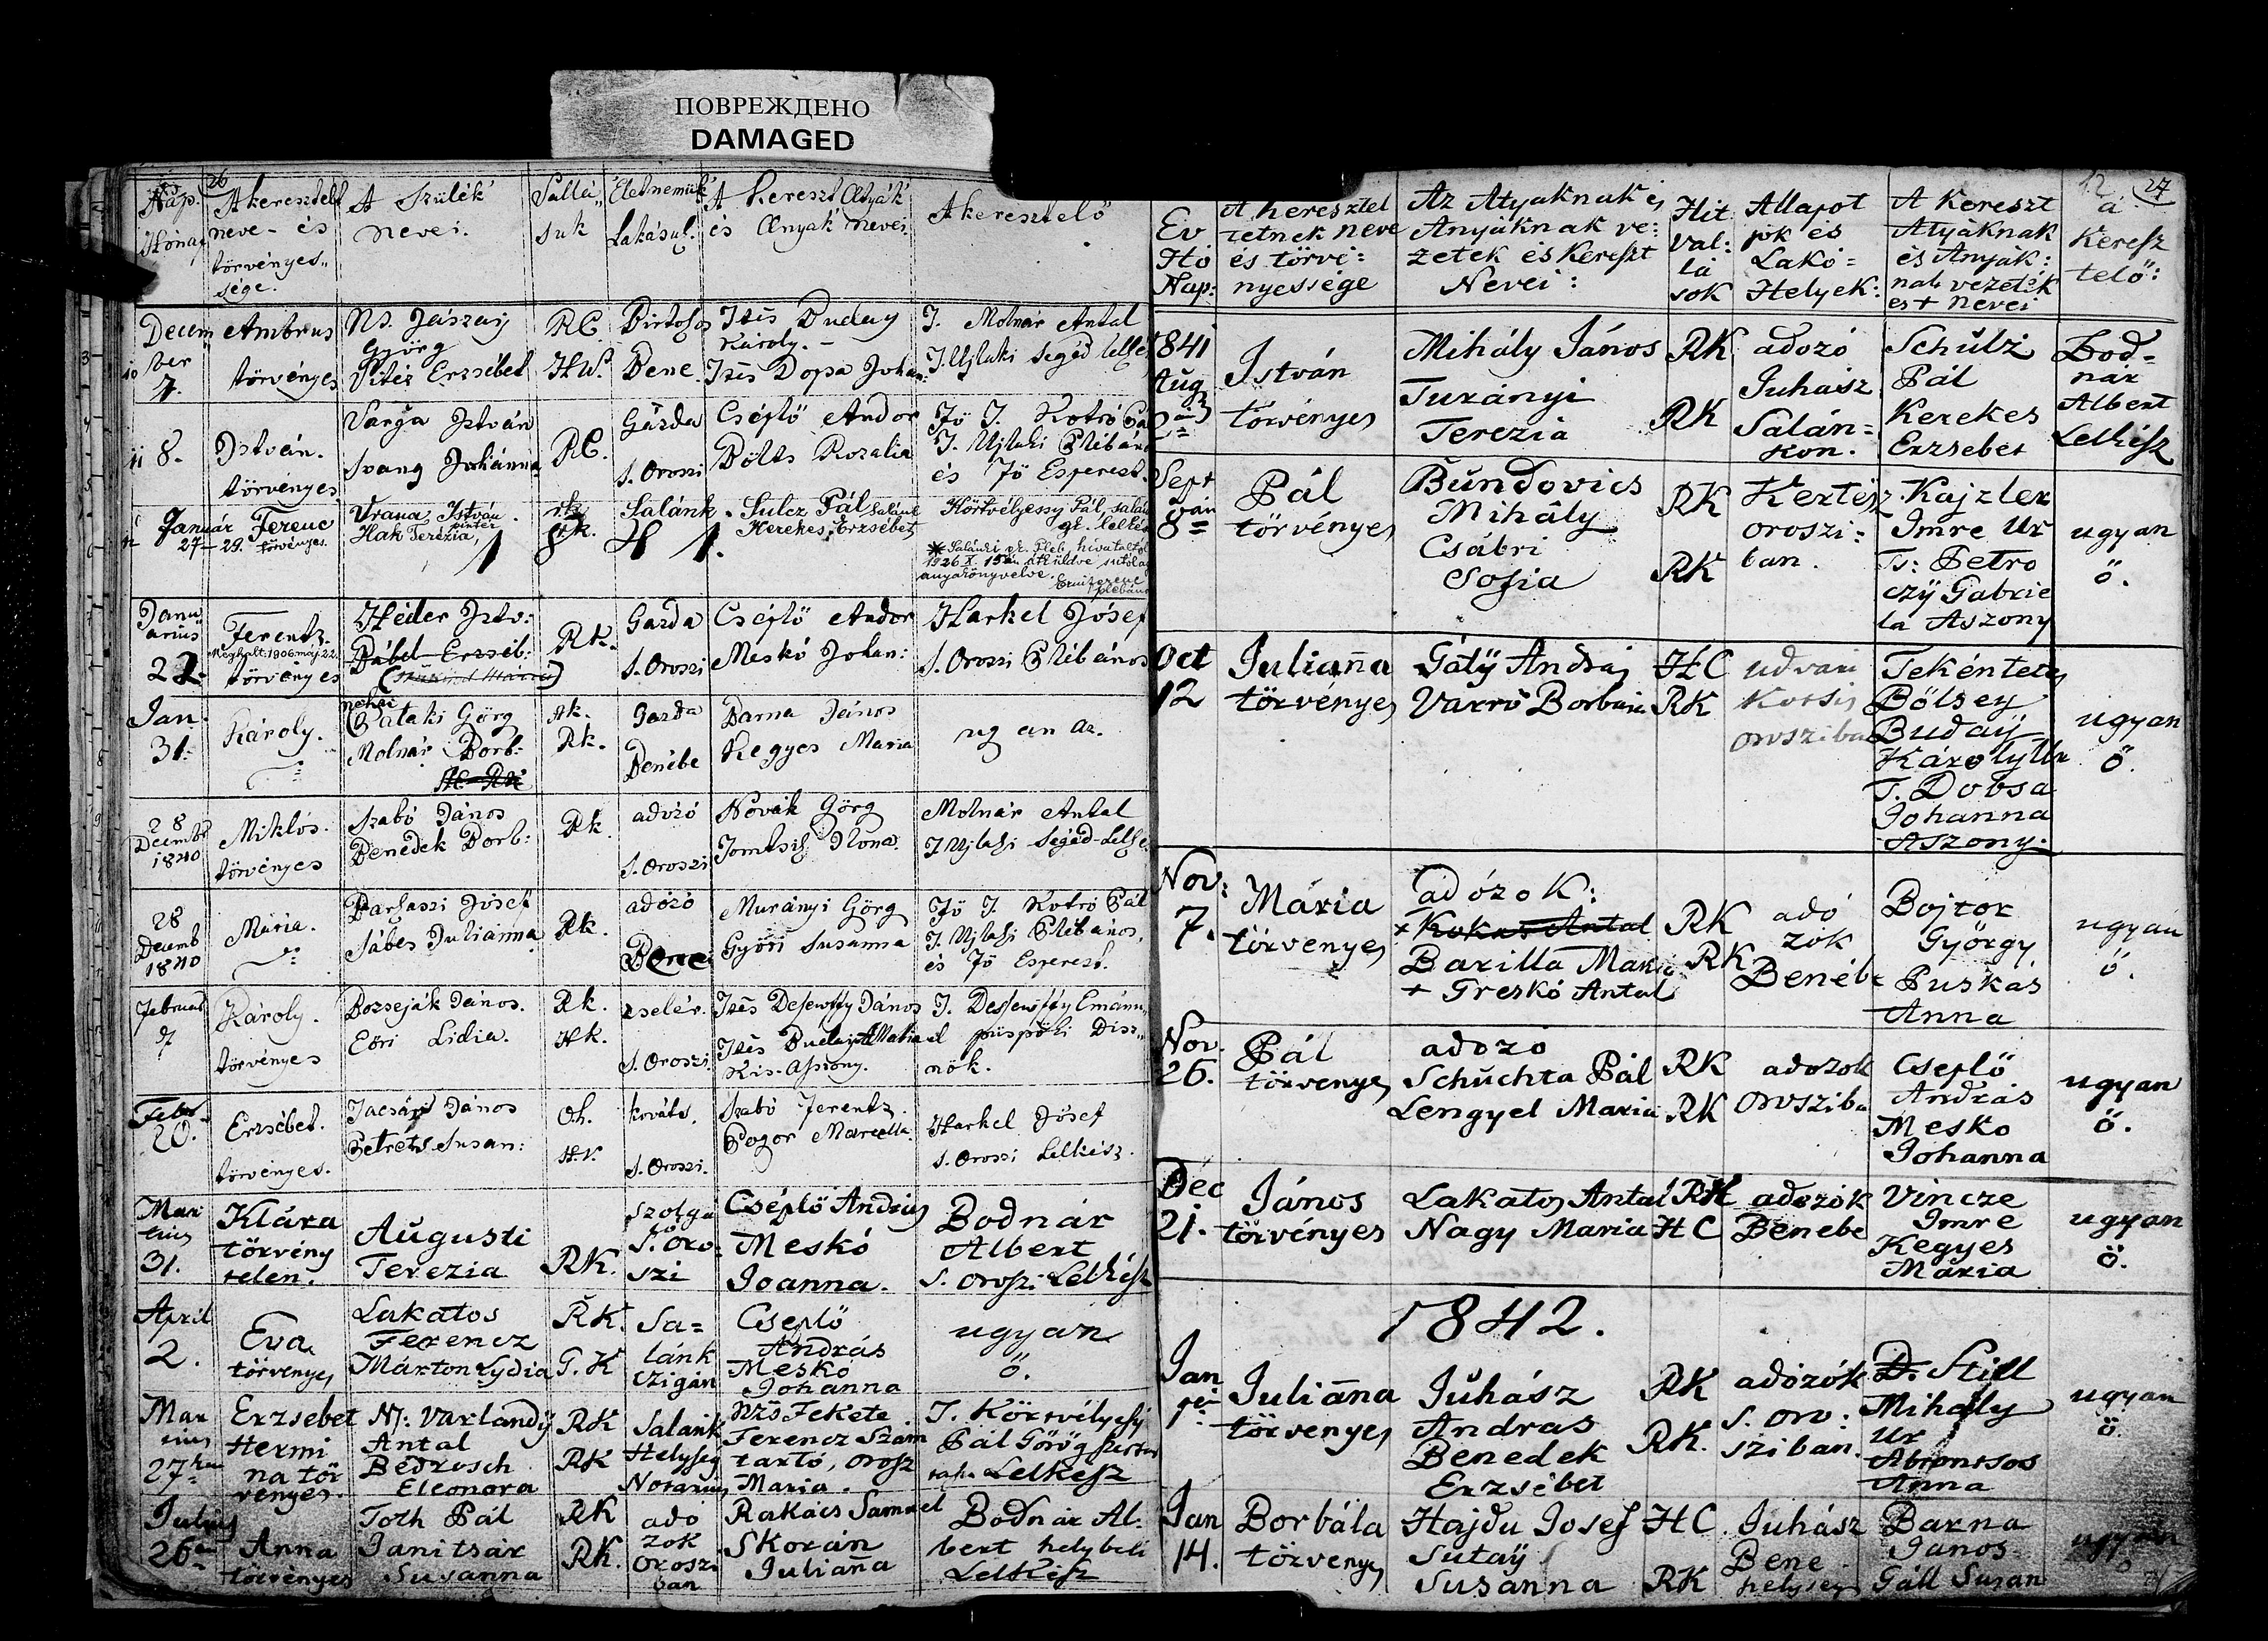 ПОВРЕЖДЕНО
DAMAGED
26
Nap.
Hónap
A keresztelt
neve - és
törvényes„
sége.
A Szülék
nevei.
Vallá„
suk
Életnemük
Lakásuk.
A kereszt Atyák
és Anyák nevei
A keresztelő
Decem
ber
7.
Ambrus
törvényes
Ns. Jászay
György
Vitéz Erzsébet
RC.
HV.
Birtokos
Bene.
Károly.
J. Molnár Antal
J. Ujlaki segéd
8.
István.
törvényes
Varga István
Juliánna
RC.
Gazda
S. Oroszi
Cséplő Andor
Rozalia
Fő T. Kotró Pá
T. Ujlaki Plébáno
és Fő Esperest.
Január
27 - 29.
Ferenc
törvényes.
Vrana István
pintér
Hak Terézia,
rk.
gk.
Salánk.
Sulcz Pál salánk
Kerekes Erzsébet
Körtvélyessy Pál, salán
gk. lelkés
1841.
1926 X. 15én átküldve utólag
anyakönyvelve.
plébános
Janu
arius
22.
Ferentz.
Meghalt: 1906 máj. 22.
törvényes
Héder Istv:
Bábel Erzséb:
Rk.
Gazda
S. Oroszi
Cséplő Andor
Meskó Johan:
Harkel Jósef
S. Oroszi Plébános
Jan.
31.
Károly.
néhai
Pataki Görg
Molnár Borb:
Hk.
Rk.
Gazda
Benébe
Barna János
Kegyes Maria
ugyan az.
28
Decemb
1840
Miklós.
törvényes
Szabó János
Benedek Borb:
Rk.
adózó
S. Oroszi
Novák Görg
Ilona.
Molnár Antal
T. Ujlaki segéd-Lelk
28
Decemb
1840
Mária.
Jósef
Julianna
Rk.
adózó
Benei
Murányi Görg
Győri Susanna
Fő T. Kotró Pál
T. Ujlaki Plébános,
és Fő Esperest.
Februar
7
Károly.
törvényes
Bozseják János.
Eőri Lidia.
Rk.
Hk.
zselér.
S. Oroszi.
Ttes Desewffy János
Ttes Budai Amalia
Kis-Aszony.
T. Dessewffy Emánu
el püspöki Diss„
nök.
Febr.
20.
Erzsébet.
törvényes.
János
Susan:
Oh.
H.V.
kováts.
S. Oroszi.
Szabó Ferentz.
Pogor Marcella.
Harkel Jósef
S. Oroszi Lelkész.
Mar
tius
31.
Klára
törvény
telen.
Augusti
Terezia
RK.
Szolgá
ló
S. Oro:
szi
Cséplő András
Meskó
Joanna.
Bodnár
Albert
S. oroszi Lelkész
April
2.
Eva
törvényes
Lakatos
Ferencz
Márton Lydia
RK.
G. K
Sa=
lánk
czigán
Cseplő
András
Meskó
Johanna
ugyan
ő.
Mar
tius
27ken
Erzsebet
Hermi
na tör
vényes.
Ns: Varlandÿ
Antal
Bedrosch
Eleonora
RK
RK
Salánk
Helység
Notarius
Nzs Fekete
Ferencz Szám
tartó, Orosz
Maria.
T. Körtvélyesÿ
Pál Görög szertar
tásu Lelkesz
Julius
26án
Anna
törvényes
Toth Pál
Janitsár
Susanna
RK
RK.
adó
zok
Oroszi
ban
Rakács Samuel
Skorán
Julianna
Bodnár Al-
bert helybeli
Lelkész
12
27
Ev
Hó
Nap:
A keresztel
tetnek neve
és törvé:
nyessége
Az Atyáknak és
Anyáknak ve:
zetek és Kereszt
Nevei:
Hit
Val:
lá
sok
Allapot
jok és
Lakó=
Helyek:
A Kereszt
Atyáknak
és Anyák:
nak vezeték
es + nevei
a
Keresz
telő:
1841
Aug
István
törvényes
Mihály János
Turányi
Terezia
RK
RK
adozó
Juhász
Salán=
kon.
Schulz
Pál
Kerekes
Erzsebet
Bod-
nár
Albert
Lelkész
Sept
8=
Pál
törvényes
Bundovics
Mihály
Csábri
Sofia
RK
RK
Kertész
oroszi:
ban.
Kajzler
Imre Ur
T: Petro
czÿ Gabrie
la Aszony
ugyan
ő.
Oct
12
Julianna
törvényes
Gálÿ András
Varró Borbára
HC
RK
udvari
Kotsis
Orosziba
Tekéntetes
Bölsey
Buday
Károly Ur
T. Dobsa
Johanna
Aszony.
ugyan
ő.
Nov:
7.
Mária
törvenyes
adózok:
+ Kokas Antal
Barilla Maria
+ Greskó Antal
RK
RK
adó
zok
Benébe
Bojtor
György
Puskás
Anna
ugyan
ő.
Nov.
26.
Pál
törvenyes
adozó
Schuchta Pál
Lengyel Maria
RK
RK
adozok
Orosziba
Cseplő
András
Mesko
Johanna
ugyan
ő.
Dec
21.
János
törvényes
Lakatos Antal
Nagy Maria
RK
HC
adozók
Benebe
Vincze
Imre
Kegyes
Mária
ugyan
ő.
1842.
Jan
1
Julianna
törvenyes
Juhász
Andras
Benedek
Erzsébet
RK
RK.
adózók
S. Oro:
sziban.
D. Still
Mihály
Ur
Anna
ugyan
ő.
Jan
14.
Borbála
törvenyes
Hajdu Josef
Sutaÿ
Susanna
HC
RK
Juhász
Bene
helyseg
Barna
János
Gáll Susan
ugyan
ő